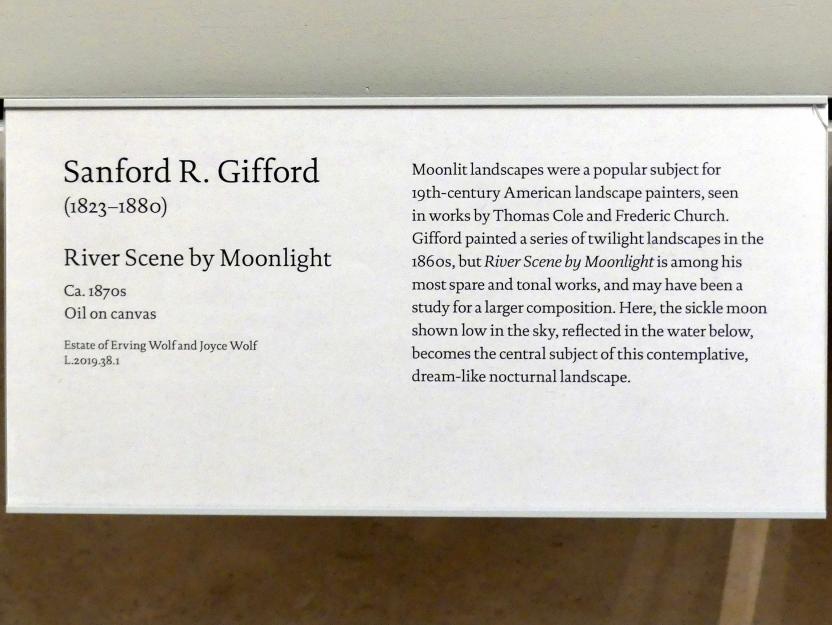 Sanford R. Gifford
(1823–1880)
River Scene by Moonlight
Ca. 1870s
Oil on canvas
Estate of Erving Wolf and Joyce Wolf
L.2019.38.1
Moonlit landscapes were a popular subject for
19th-century American landscape painters, seen
in works by Thomas Cole and Frederic Church.
Gifford painted a series of twilight landscapes in the
1860s, but River Scene by Moonlight is among his
most spare and tonal works, and may have been a
study for a larger composition. Here, the sickle moon
shown low in the sky, reflected in the water below,
becomes the central subject of this contemplative,
dream-like nocturnal landscape.